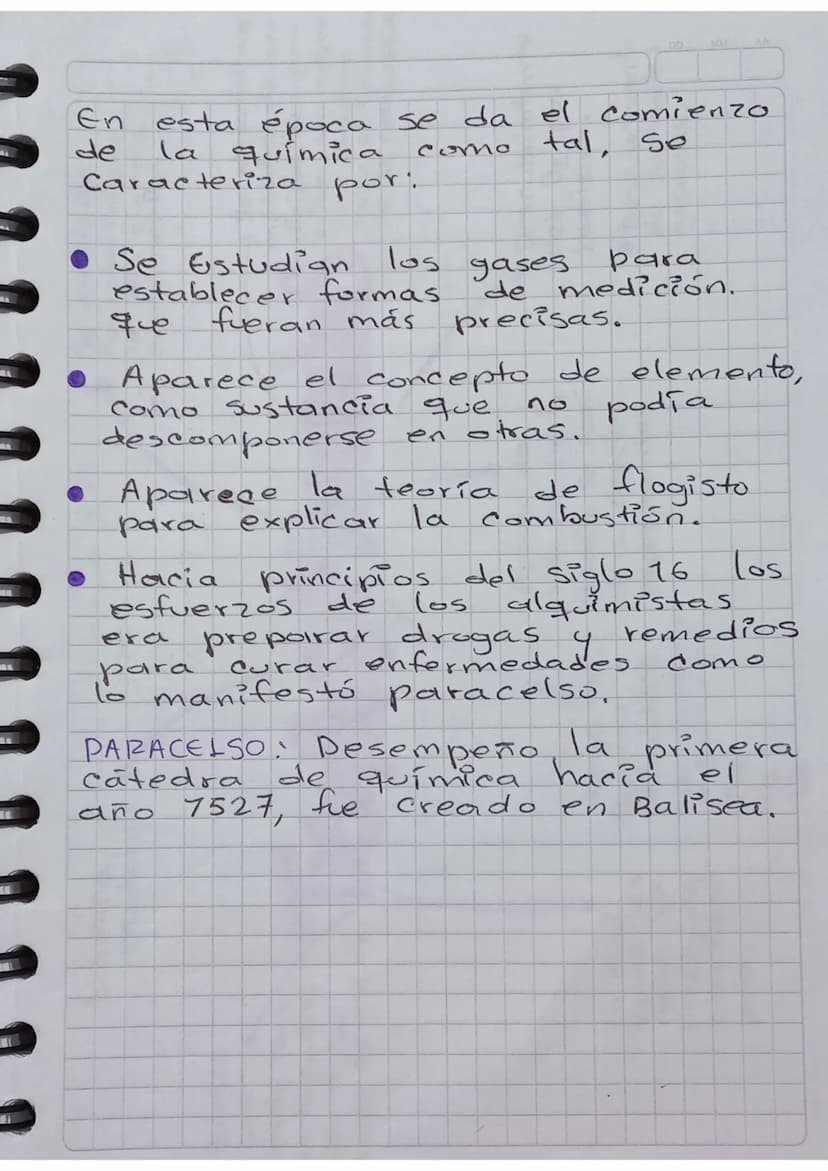 En esta época se da el comienzo
de la química como tal, se
Caracteriza por:
Se Estudian los gases para
establecer formas de medición.
que fueran más precisas.
Aparece el concepto de elemento,
como sustancia que no podía
descomponerse en otras.
Aparece la teoría de flogisto
para explicar la combustión.
Hacia principios del siglo 16 los
esfuerzos de los alquimistas
era preparar drogas y remedios
para curar enfermedades como
lo manifestó paracelso.
PARACELSO: Desempeño la primera
cátedra de química hacia el
año 1527, fue creado en Balisea.